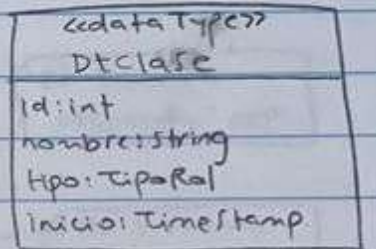 <<dataType>>
DtClase
id:int
nombre:string
tipo:TipoRol
inicio:Timestamp